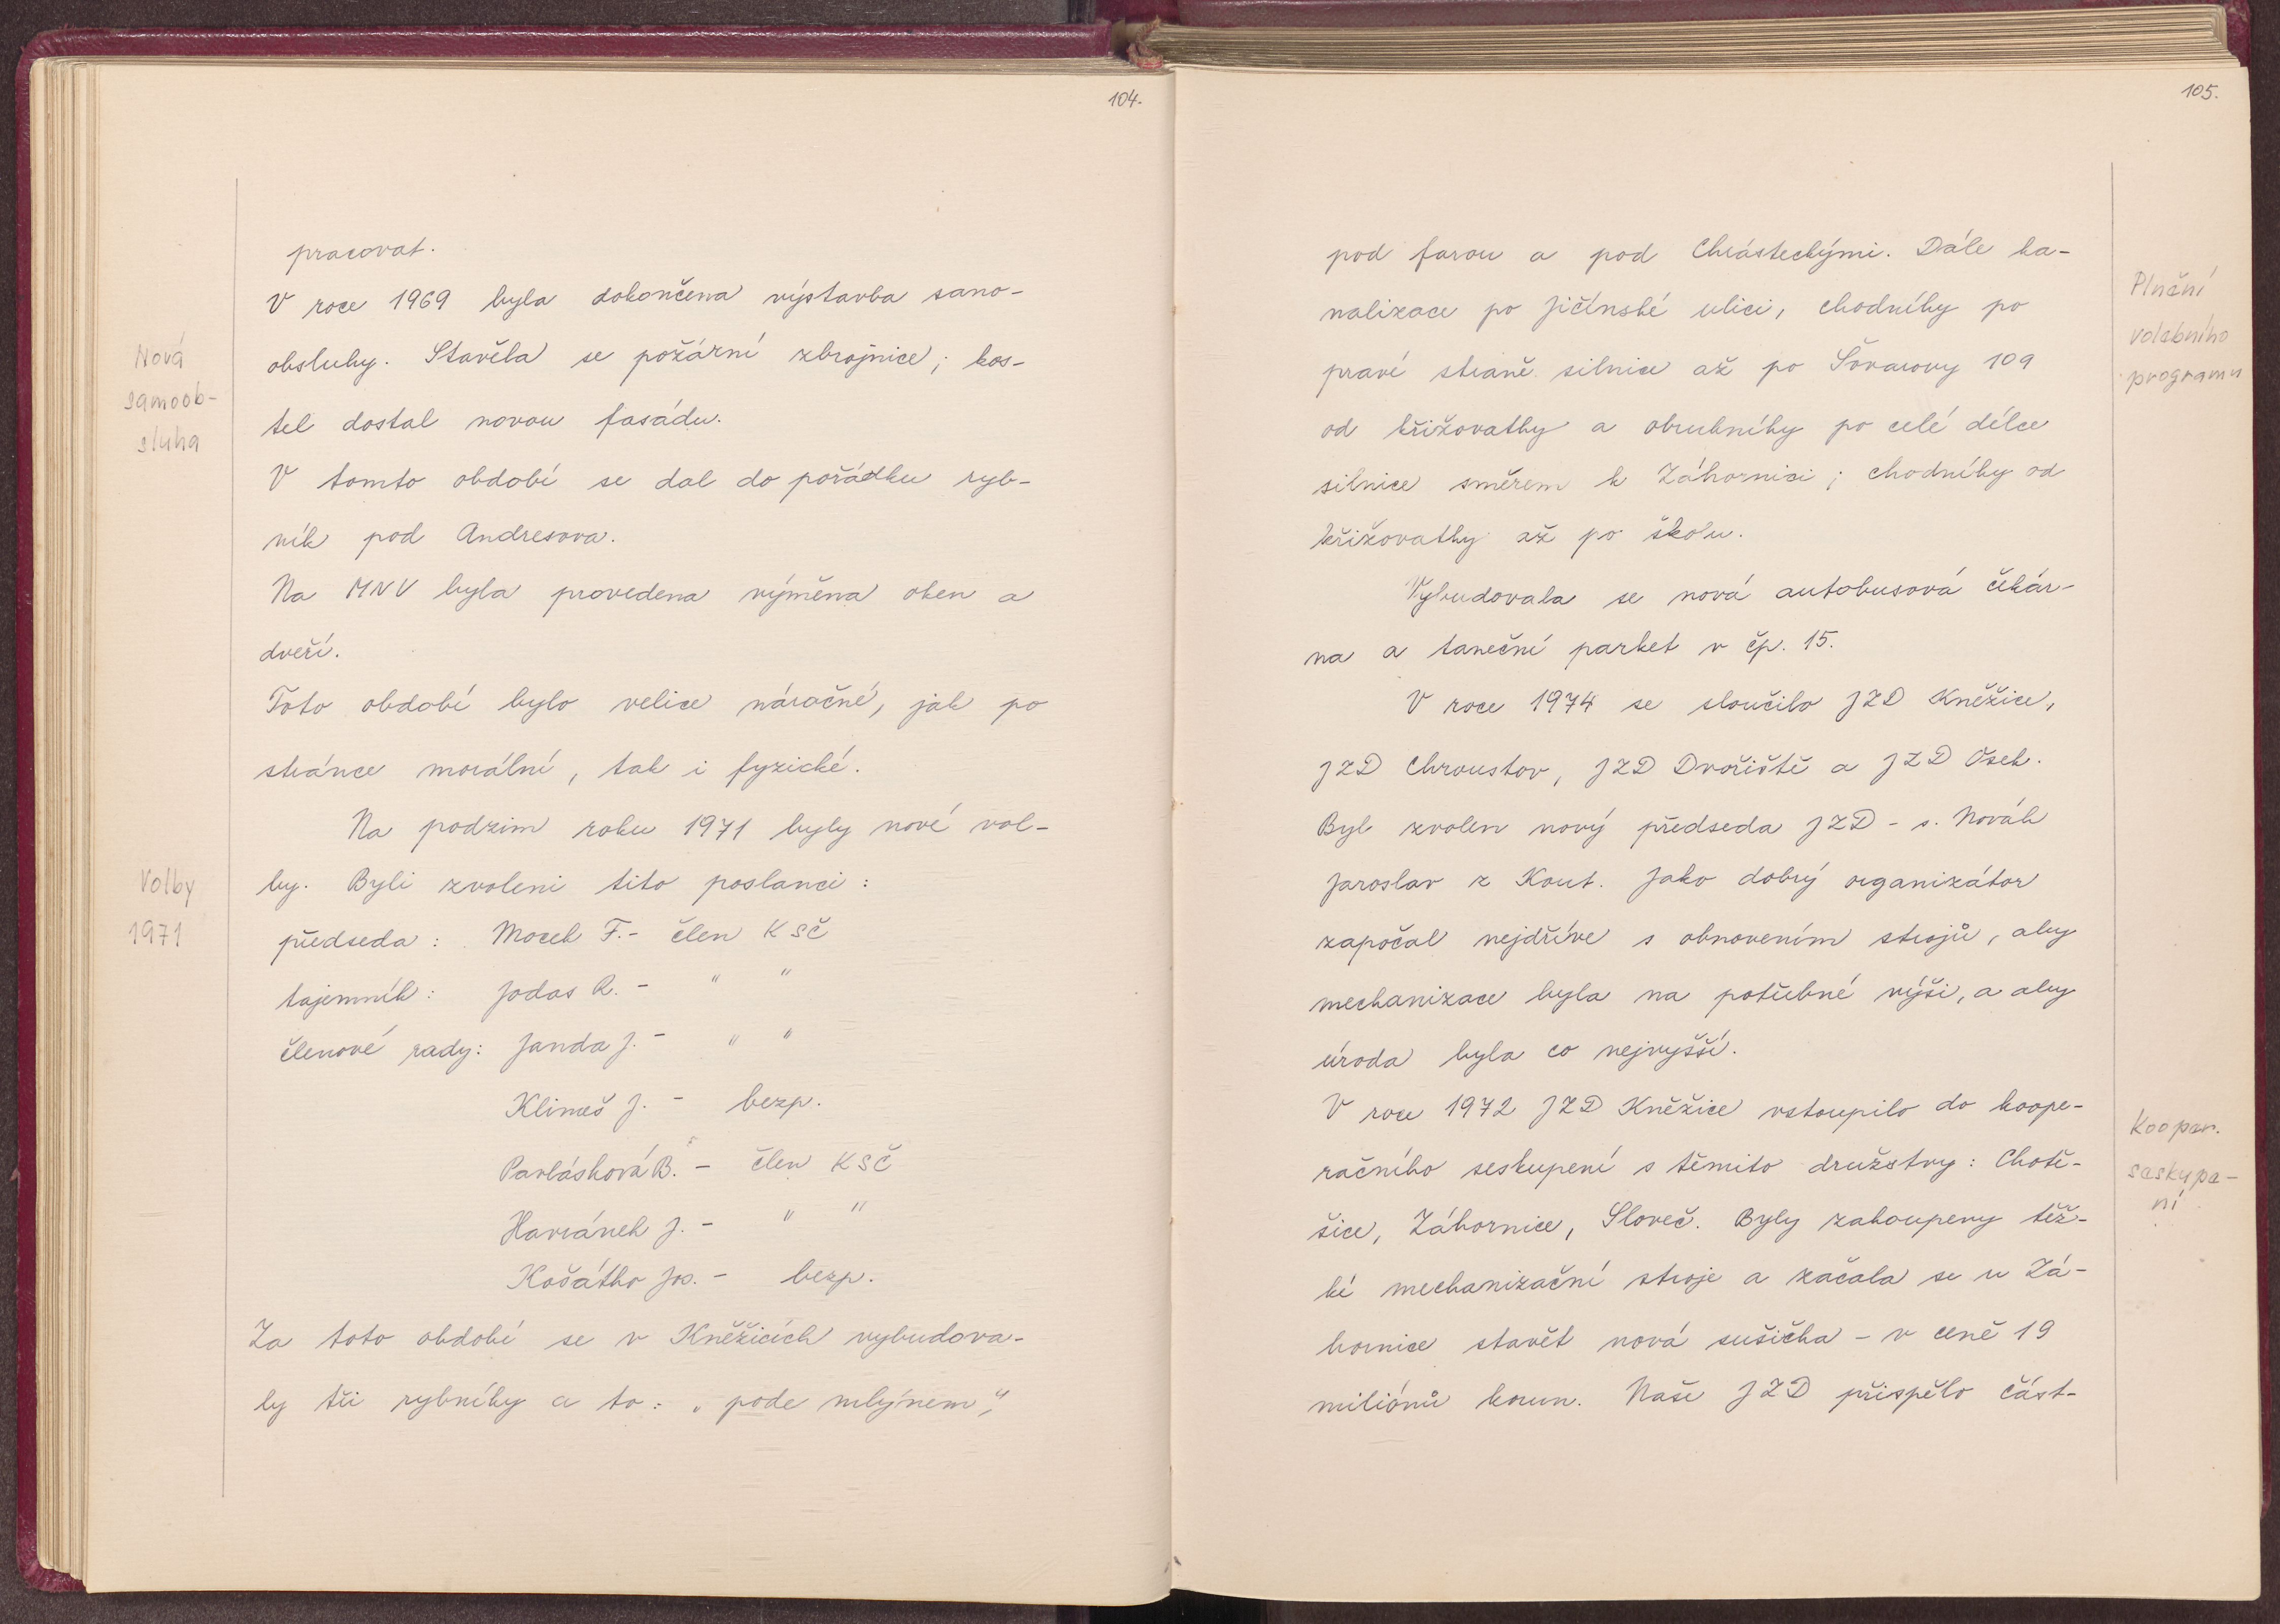 104.
pracovat.
V roce 1969 byla dokončena výstavba samo-
obsluhy. Stavěla se požární zbrojnice; kos-
tel dostal novou fasádu.
V tomto období se dal do pořádku ryb-
ník pod Andresova.
Na MNV byla provedena výměna oken a
dveří.
Toto období bylo velice náročné, jak po
stránce morální, tak i fyzické.
Na podzim roku 1971 byly nové vol-
by. Byli zvoleni tito poslanci:
předseda: Mocek F. - člen KSČ
tajemník: Jodas R. - " "
členové rady: Janda J. - " "
Klimeš J. - bezp.
Pavlásková B. - člen KSČ
Havránek J. - " "
Košátko Jos. - bezp.
Za toto období se v Kněžicích vybudova-
ly tři rybníky a to: "pode mlýnem",
Nová
samoob-
sluha
Volby
1971
105.
pod farou a pod Chrásteckými. Dále ka-
nalizace po Jičínské ulici, chodníky po
pravé straně silnice až po Šovarovy 109
od křižovatky a obrubníky po celé délce
silnice směrem k Záhornici; chodníky od
křižovatky až po školu.
Vybudovala se nová autobusová čekár-
na a taneční parket v čp. 15.
V roce 1974 se sloučilo JZD Kněžice,
JZD Chroustov, JZD Dvořiště a JZD Osek.
Byl zvolen nový předseda JZD - s. Novák
Jaroslav z Kout. Jako dobrý organizátor
započal nejdříve s obnovením strojů, aby
mechanizace byla na potřebné výši, a aby
úroda byla co nejvyšší.
V roce 1972 JZD Kněžice vstoupilo do koope-
račního seskupení s těmito družstvy: Chotě-
šice, Záhornice, Sloveč. Byly zakoupeny těž-
ké mechanizační stroje a začala se u Zá-
hornice stavět nová sušička - v ceně 19
miliónů korun. Naše JZD přispělo část-
Plnění
volebního
programu
Kooper.
seskupe-
ní